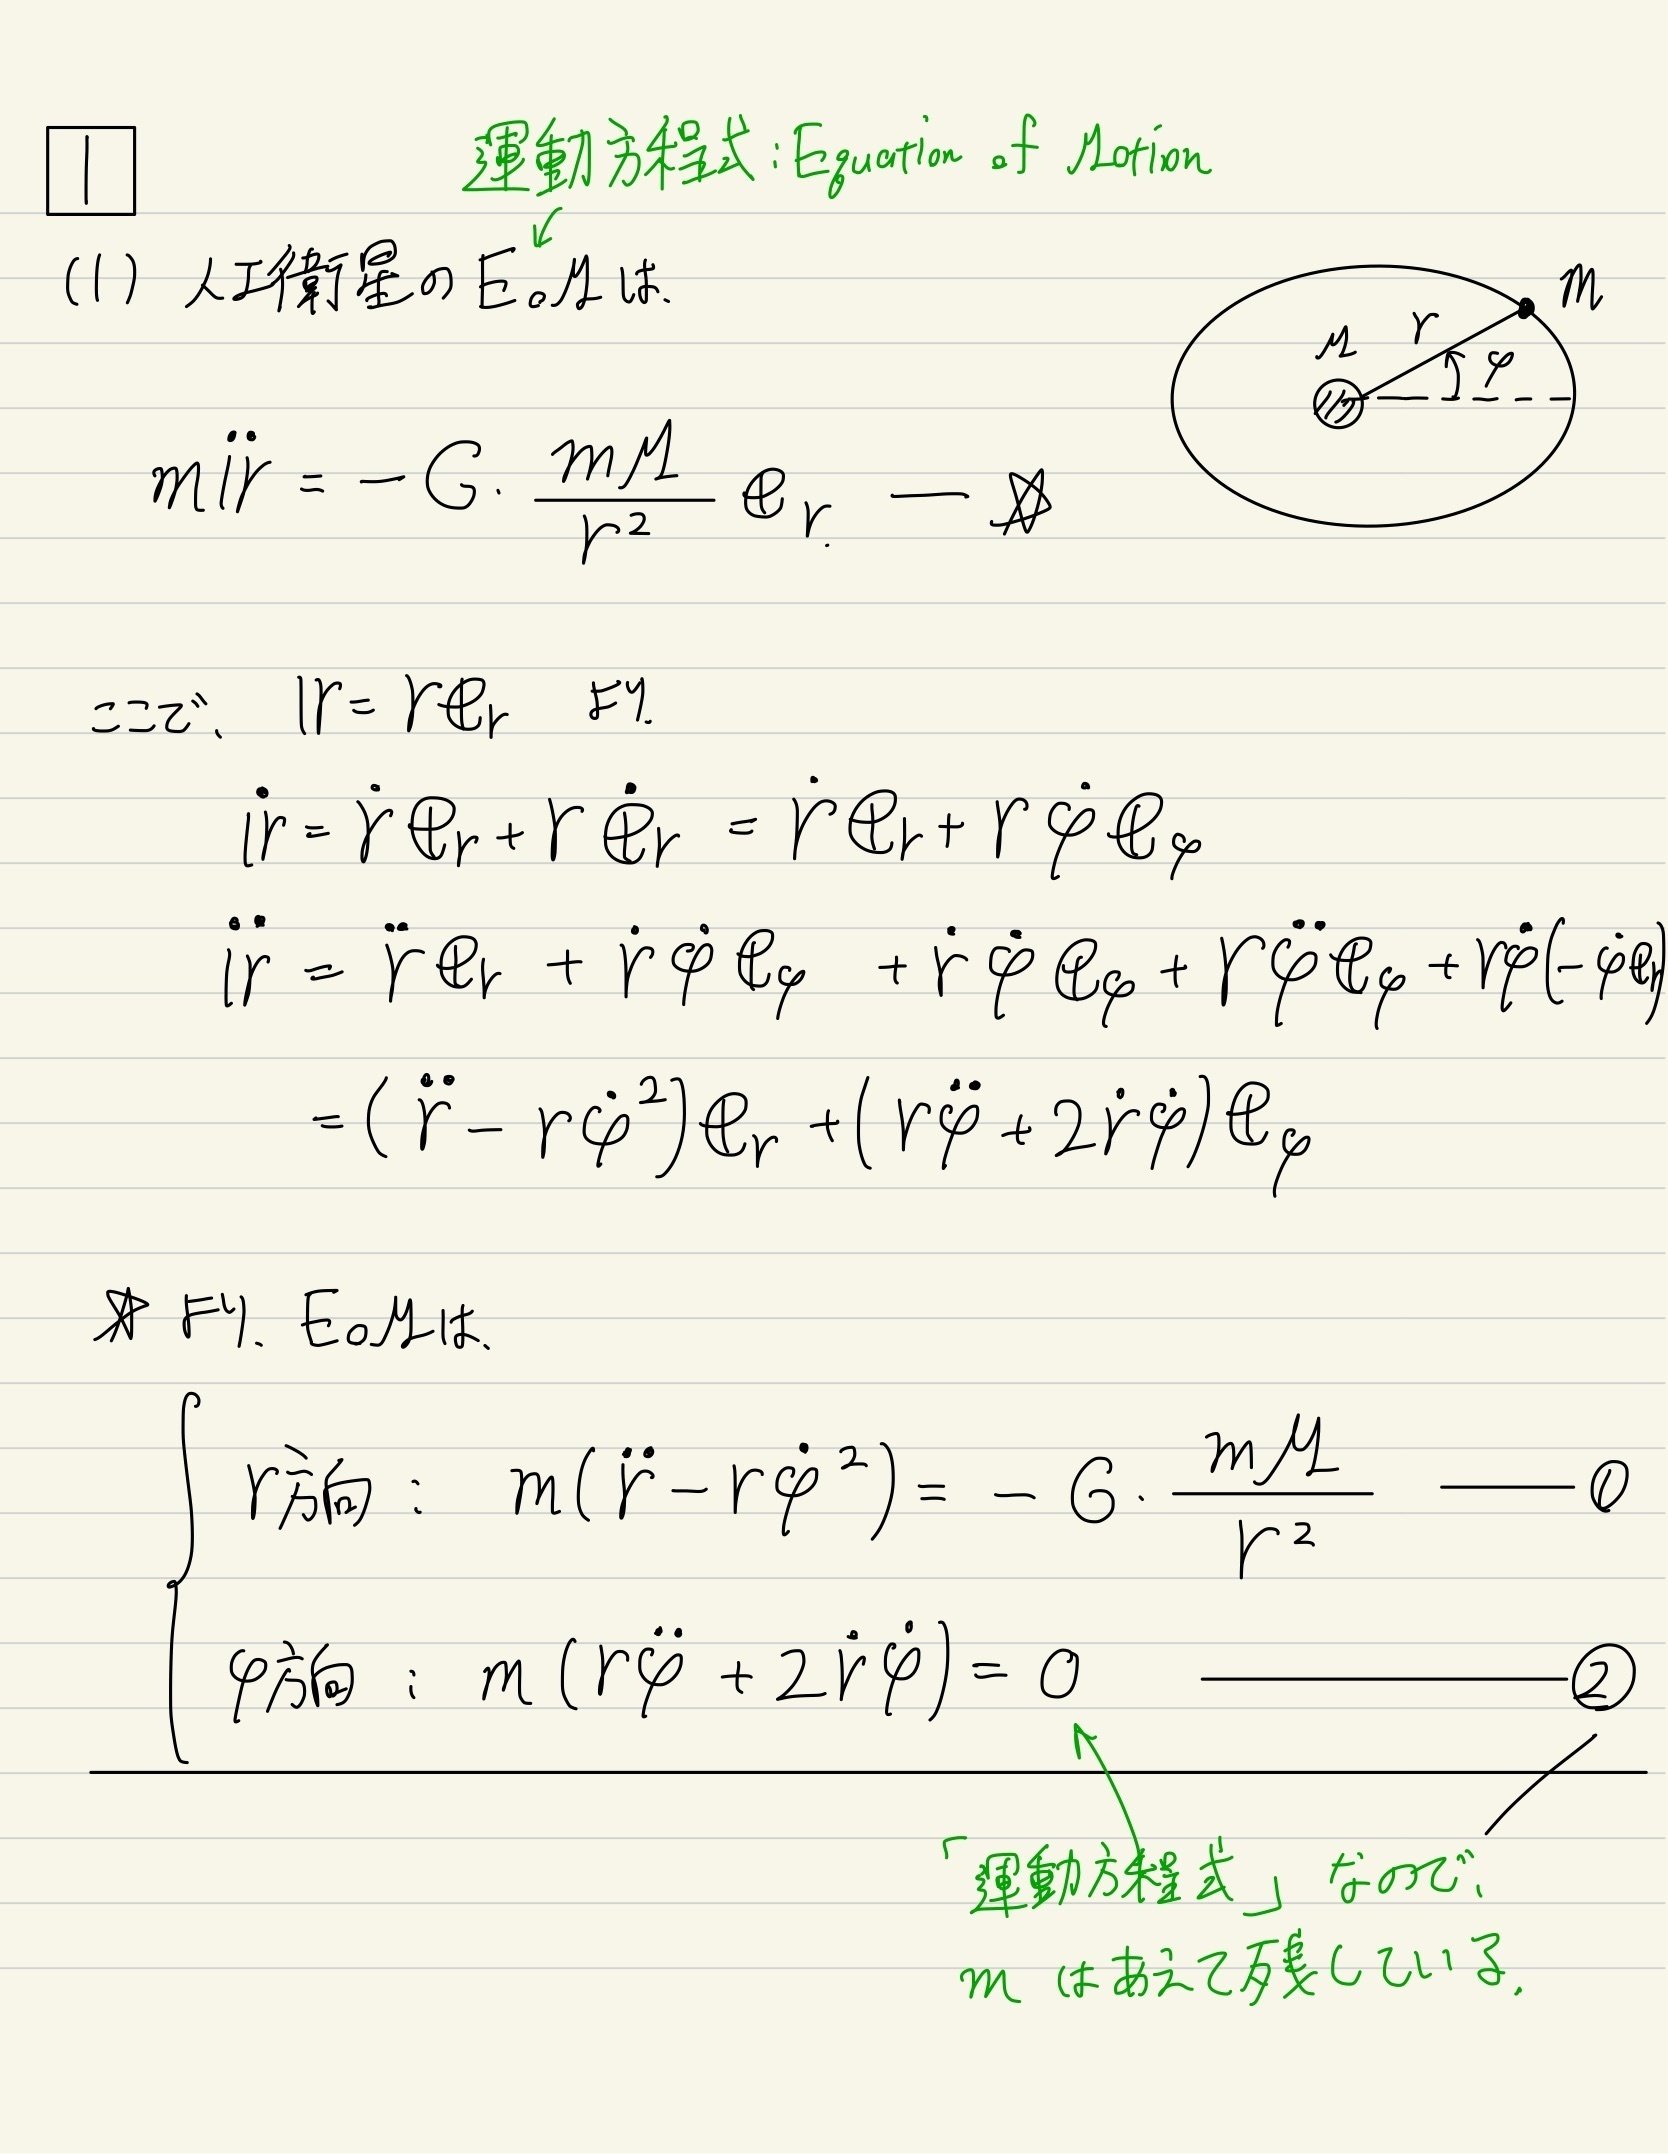 1
運動方程式:Equation of Motion
(1) 人工衛星のEoMは、
m𝐫̈ = -G・mM/r² 𝐞r. — ☆
M r φ m
ここで、 𝐫 = r𝐞r より、
𝐫̇ = ṙ𝐞r + r𝐞̇r = ṙ𝐞r + rφ̇𝐞φ
𝐫̈ = r̈𝐞r + ṙφ̇𝐞φ + ṙφ̇𝐞φ + rφ̈𝐞φ + rφ̇(-φ̇𝐞r)
= (r̈ - rφ̇²)𝐞r + (rφ̈ + 2ṙφ̇)𝐞φ
☆より、EoMは、
r方向: m(r̈ - rφ̇²) = -G・mM/r² — ①
φ方向: m(rφ̈ + 2ṙφ̇) = 0 — ②
「運動方程式」なので、
mはあえて残している.